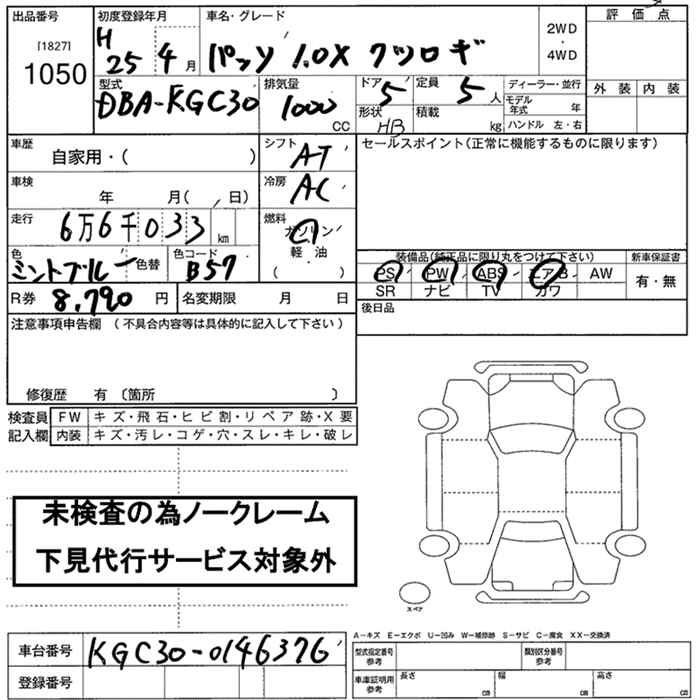 出品番号 初度登録年月 車名・グレード 評価点
[1827] H 25 4月 パッソ 1.0X クツロギ 2WD・4WD
1050
型式 排気量 ドア 5 定員 5人 ディーラー・並行 外装 内装
DBA-KGC30 1000 CC 形状 HB 積載 kg モデル年式 年
ハンドル 左・右
車歴 自家用・( ) シフト AT セールスポイント(正常に機能するものに限ります)
車検 年 月( 日) 冷房 AC
走行 6万6千033 km 燃料 ガソリン
軽・油
( )
色 ミントブルー 色替 色コード B57 装備品(純正品に限り丸をつけて下さい) 新車保証書
PS PW ABS エアB AW 有・無
SR ナビ TV カワ
R券 8,790円 名変期限 月 日 後日品
注意事項申告欄 (不具合内容等は具体的に記入して下さい)
修復歴 有 〔箇所 〕
検査員 FW キズ・飛石・ヒビ割・リペア跡・X要
記入欄 内装 キズ・汚レ・コゲ・穴・スレ・キレ・破レ
未検査の為ノークレーム
下見代行サービス対象外
スペア
A-キズ E-エクボ U-凹み W-補修跡 S-サビ C-腐食 XX-交換済
車台番号 KGC30-0146376 型式指定番号 参考 類別区分番号 参考
登録番号 車庫証明用 参考 長さ cm 幅 cm 高さ cm